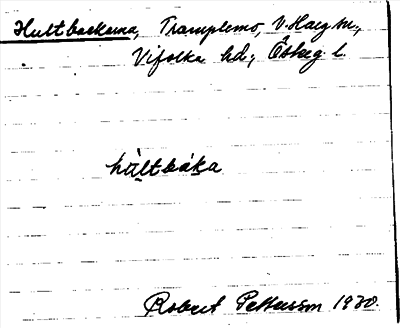 Hultbackarna, Tramplemo, V. Harg sn.,
Vifolka hd., Östg. l.
hùltbáka
Robert Pettersson 1930.